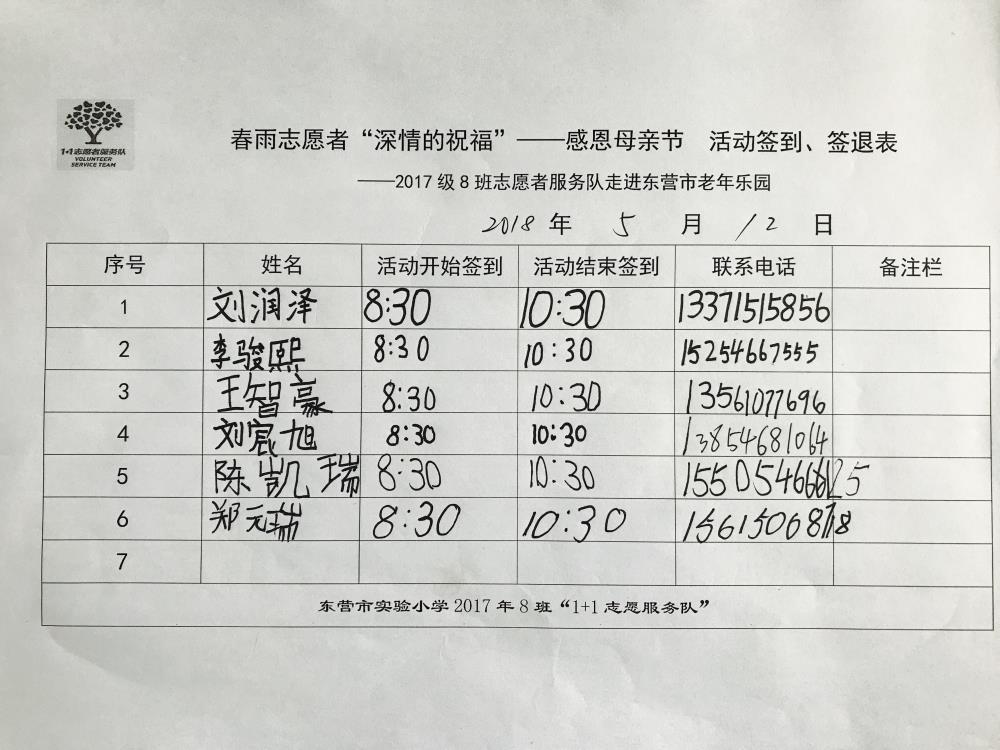 1+1志愿者服务队
VOLUNTEER
SERVICE TEAM
春雨志愿者“深情的祝福”——感恩母亲节 活动签到、签退表
——2017级8班志愿者服务队走进东营市老年乐园
2018 年 5 月 12 日
序号 姓名 活动开始签到 活动结束签到 联系电话 备注栏
1 刘润泽 8:30 10:30 13371515856
2 李骏熙 8:30 10:30 15254667555
3 王智豪 8:30 10:30 13561077696
4 刘宸旭 8:30 10:30 13854681064
5 陈凯瑞 8:30 10:30
6 郑元瑞 8:30 10:30
7
东营市实验小学2017年8班“1+1志愿服务队”